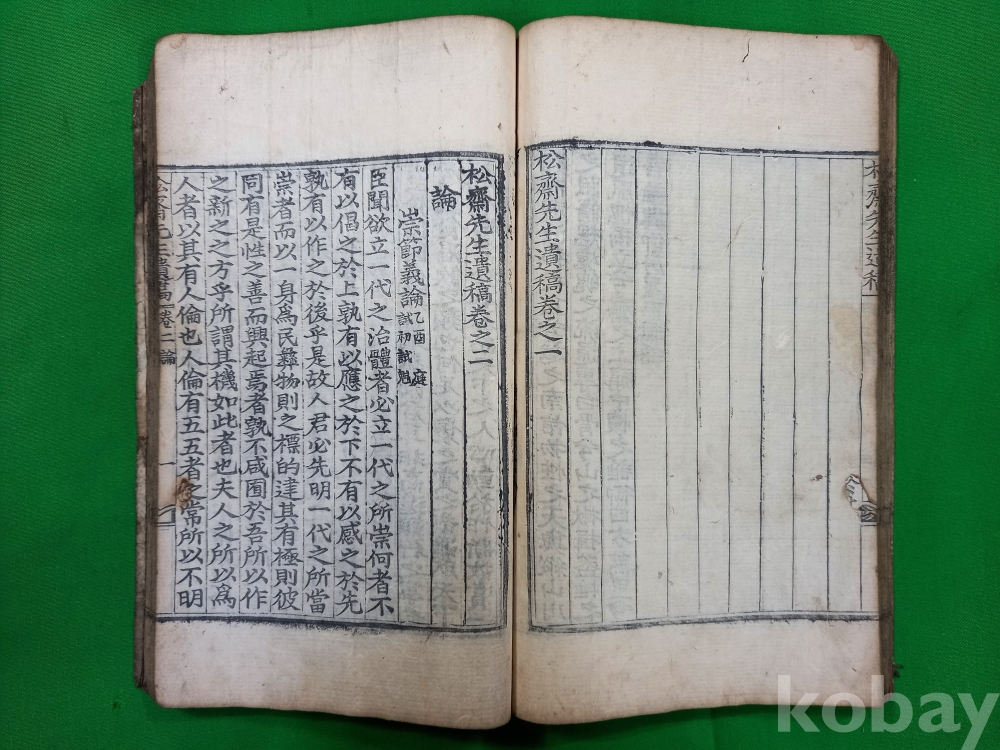 松齋先生遺稿卷之一
松齋先生遺稿卷之二
論
崇節義論 乙酉庭試初試魁
臣聞欲立一代之治體者必立一代之所崇何者不
有以倡之於上孰有以應之於下不有以感之於先
孰有以作之於後乎是故人君必先明一代之所當
崇者而以一身爲民彝物則之標的建其有極則彼
同有是性之善而興起焉者孰不咸囿於吾所以作
之新之之方乎所謂其機如此者也夫人之所以爲
人者以其有人倫也人倫有五五者之常所以不明
卷二 論
一
kobay